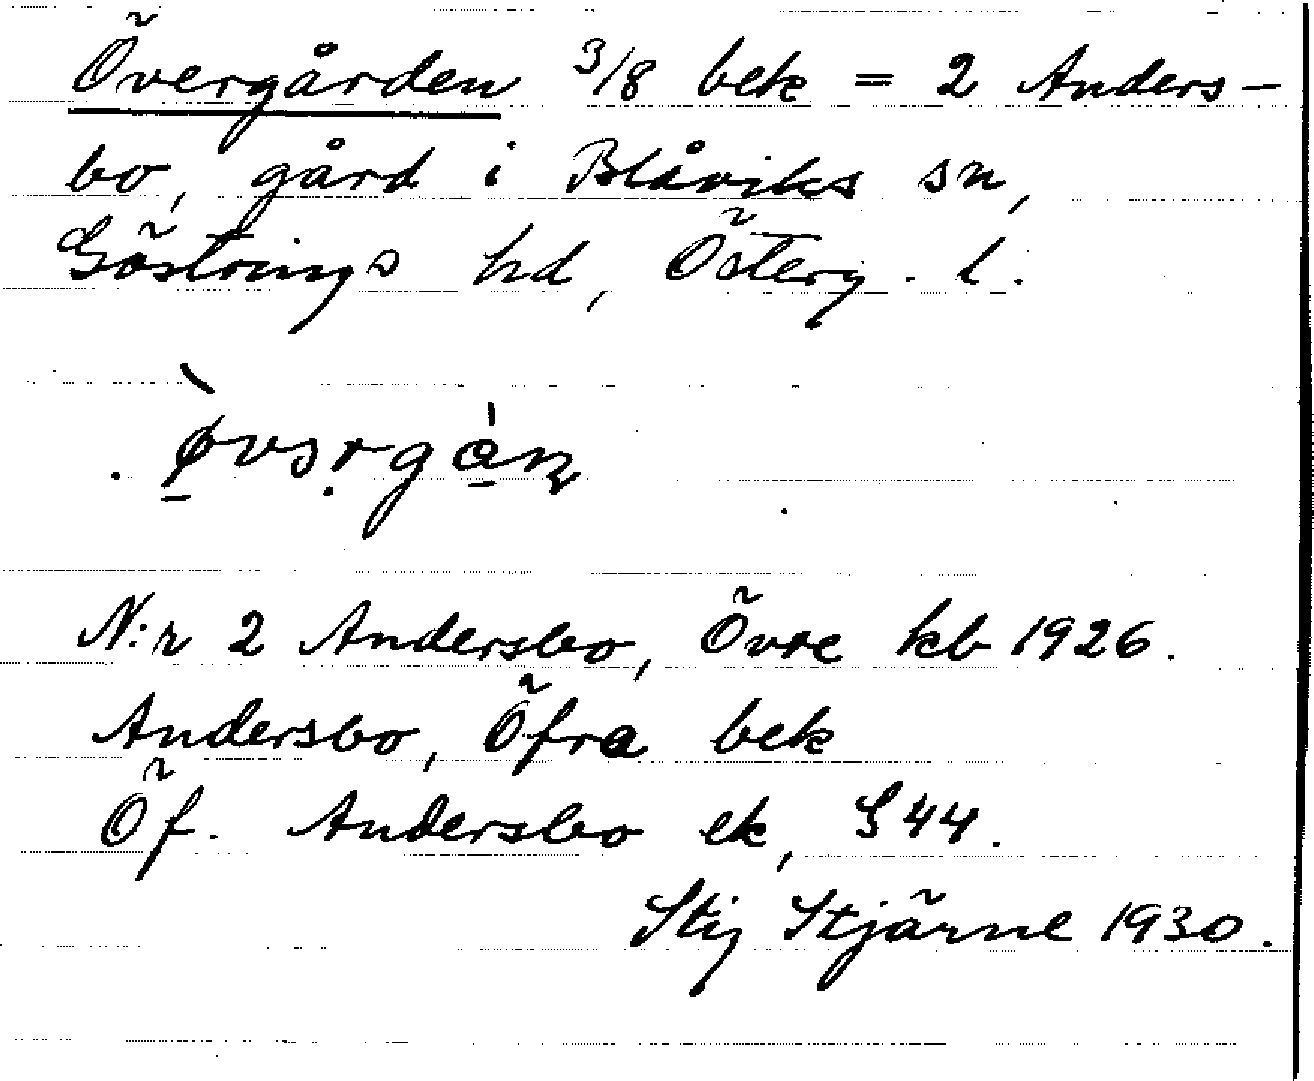 Övergården 3/8 bek = 2 Anders-
bo, gård i Blåviks sn,
Göstrings hd, Österg. l.
N:r 2 Andersbo, Övre kb 1926.
Andersbo, Öfra bek
Öf. Andersbo ek, S 44.
Stig Stjärne 1930.